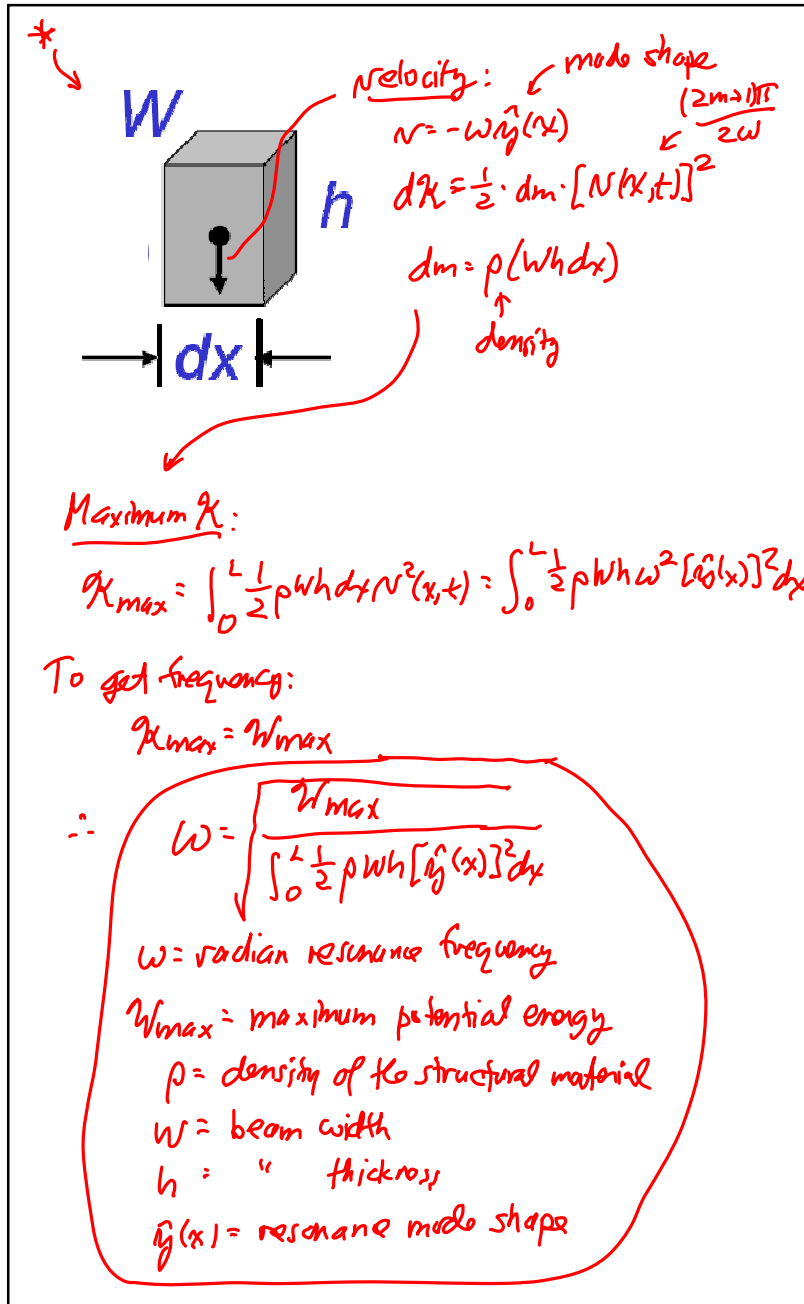 *
W
h
dx
velocity:
mode shape
v = -ωŷ(x)
(2n+1)π
2ω
dK = 1/2 · dm · [v(x,t)]²
dm = ρ(Whdx)
density
Maximum K:
Kmax = ∫₀ᴸ 1/2 ρWhdx v²(x,t) = ∫₀ᴸ 1/2 ρWhω²[ŷ(x)]²dx
To get frequency:
Kmax = Wmax
∴ ω = √( Wmax / ∫₀ᴸ 1/2 ρWh[ŷ(x)]²dx )
ω = radian resonance frequency
Wmax = maximum potential energy
ρ = density of the structural material
W = beam width
h = " thickness
ŷ(x) = resonance mode shape